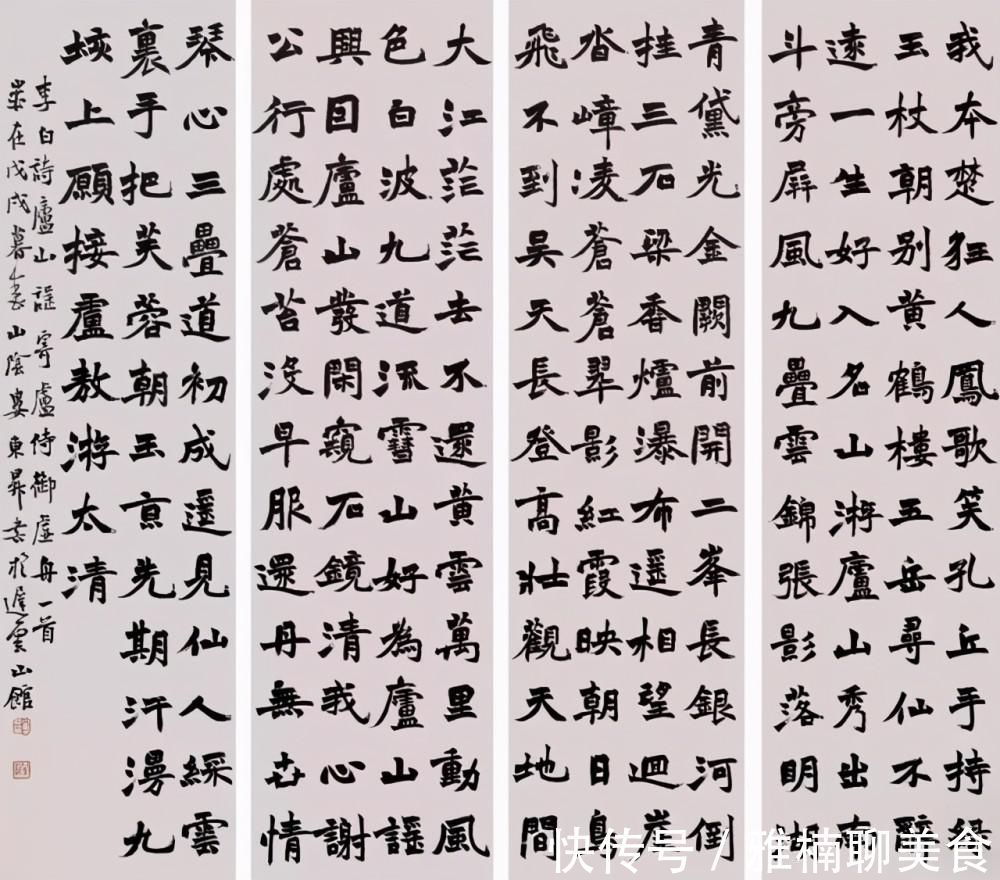 我本楚狂人鳳歌笑孔丘手持緑
玉杖朝别黄鶴樓五岳尋仙不辭
遠一生好入名山游廬山秀出南
斗旁屏風九疊雲錦張影落明湖
青黛光金闕前開二峯長銀河倒
挂三石梁香爐瀑布遥相望迴崖
沓嶂凌蒼蒼翠影紅霞映朝日鳥
飛不到吴天長登高壯觀天地間
大江茫茫去不還黄雲萬里動風
色白波九道流雪山好為廬山謡
興因廬山發閑窺石鏡清我心謝
公行處蒼苔没早服還丹無世情
琴心三疊道初成遥見仙人綵雲
裏手把芙蓉朝玉京先期汗漫九
垓上願接盧敖游太清
李白詩廬山謡寄盧侍御虚舟一首
歲在戊戌暮春山陰婁東昇書於遲雲山館
快传号 / 雅楠聊美食